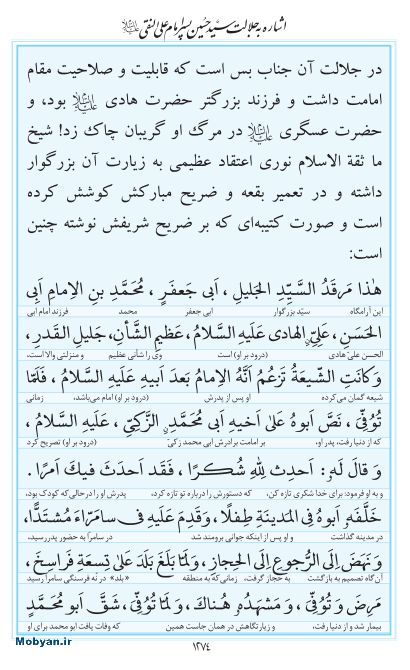 اشاره به جلالت سید حسین پسر امام علی النقی علیه‌السلام
در جلالت آن جناب بس است که قابلیت و صلاحیت مقام
امامت داشت و فرزند بزرگتر حضرت هادی علیه‌السلام بود، و
حضرت عسگری علیه‌السلام در مرگ او گریبان چاک زد! شیخ
ما ثقة الاسلام نوری اعتقاد عظیمی به زیارت آن بزرگوار
داشته و در تعمیر بقعه و ضریح مبارکش کوشش کرده
است و صورت کتیبه‌ای که بر ضریح شریفش نوشته چنین
است:
هٰذا مَرقَدُ السَّیِّدِ الجَلیلِ ، اَبی جَعفَرٍ ، مُحَمَّدِ بنِ الاِمامِ اَبِی
این آرامگاه سیّد بزرگوار ابی جعفر محمد فرزند امام ابی
الحَسَنِ ، عَلِیٍّ الهادی عَلَیهِ السَّلامُ ، عَظیمِ الشَّأنِ، جَلیلِ القَدرِ ،
الحسن علیّ هادی (درود بر او) است وی را شأنی عظیم و منزلتی والا است،
وَ کانَتِ الشّیعَةُ تَزعُمُ اَنَّهُ الاِمامُ بَعدَ اَبیهِ عَلَیهِ السَّلامُ ، فَلَمّا
شیعه گمان می‌کرده او پس از پدرش (درود بر او) امام می‌باشد، زمانی
تُوُفِّیَ ، نَصَّ اَبوهُ عَلیٰ اَخیهِ اَبی مُحَمَّدٍ الزَّکِیِّ ، عَلَیهِ السَّلامُ ،
که از دنیا رفت، پدر او، بر امامت برادرش ابی محمد زکیّ (درود بر او) تصریح کرد
وَ قالَ لَهُ : اَحدِث لِلّٰهِ شُکرًا ، فَقَد اَحدَثَ فیكَ اَمرًا .
و به او فرمود: برای خدا شکری تازه کن، که دستورش را درباره تو تازه کرد، پدرش او را درحالی‌که کودک بود،
خَلَّفَهُ اَبوهُ فِی المَدینَةِ طِفلًا ، وَ قَدِمَ عَلَیهِ فی سامَرّاءَ مُشتَدًّا،
در مدینه گذاشت و او پس از اینکه جوانی برومند شد در سامرّا به حضور پدر رسید،
وَ نَهَضَ اِلَی الرُّجوعِ اِلَی الحِجازِ، وَ لَمّا بَلَغَ بَلَدَ عَلیٰ تِسعَةِ فَراسِخَ ،
آن‌گاه تصمیم به بازگشت به حجاز گرفت، زمانی‌که به منطقه «بلد» در نُه فرسنگی سامرّا رسید
مَرِضَ وَ تُوُفِّیَ ، وَ مَشهَدُهُ هُناكَ ، وَ لَمّا تُوُفِّیَ ، شَقَّ اَبو مُحَمَّدٍ
بیمار شد و از دنیا رفت، و زیارتگاهش در همان جاست همین که وفات یافت ابو محمد برای او
Mobyan.ir
۱۲۷۴